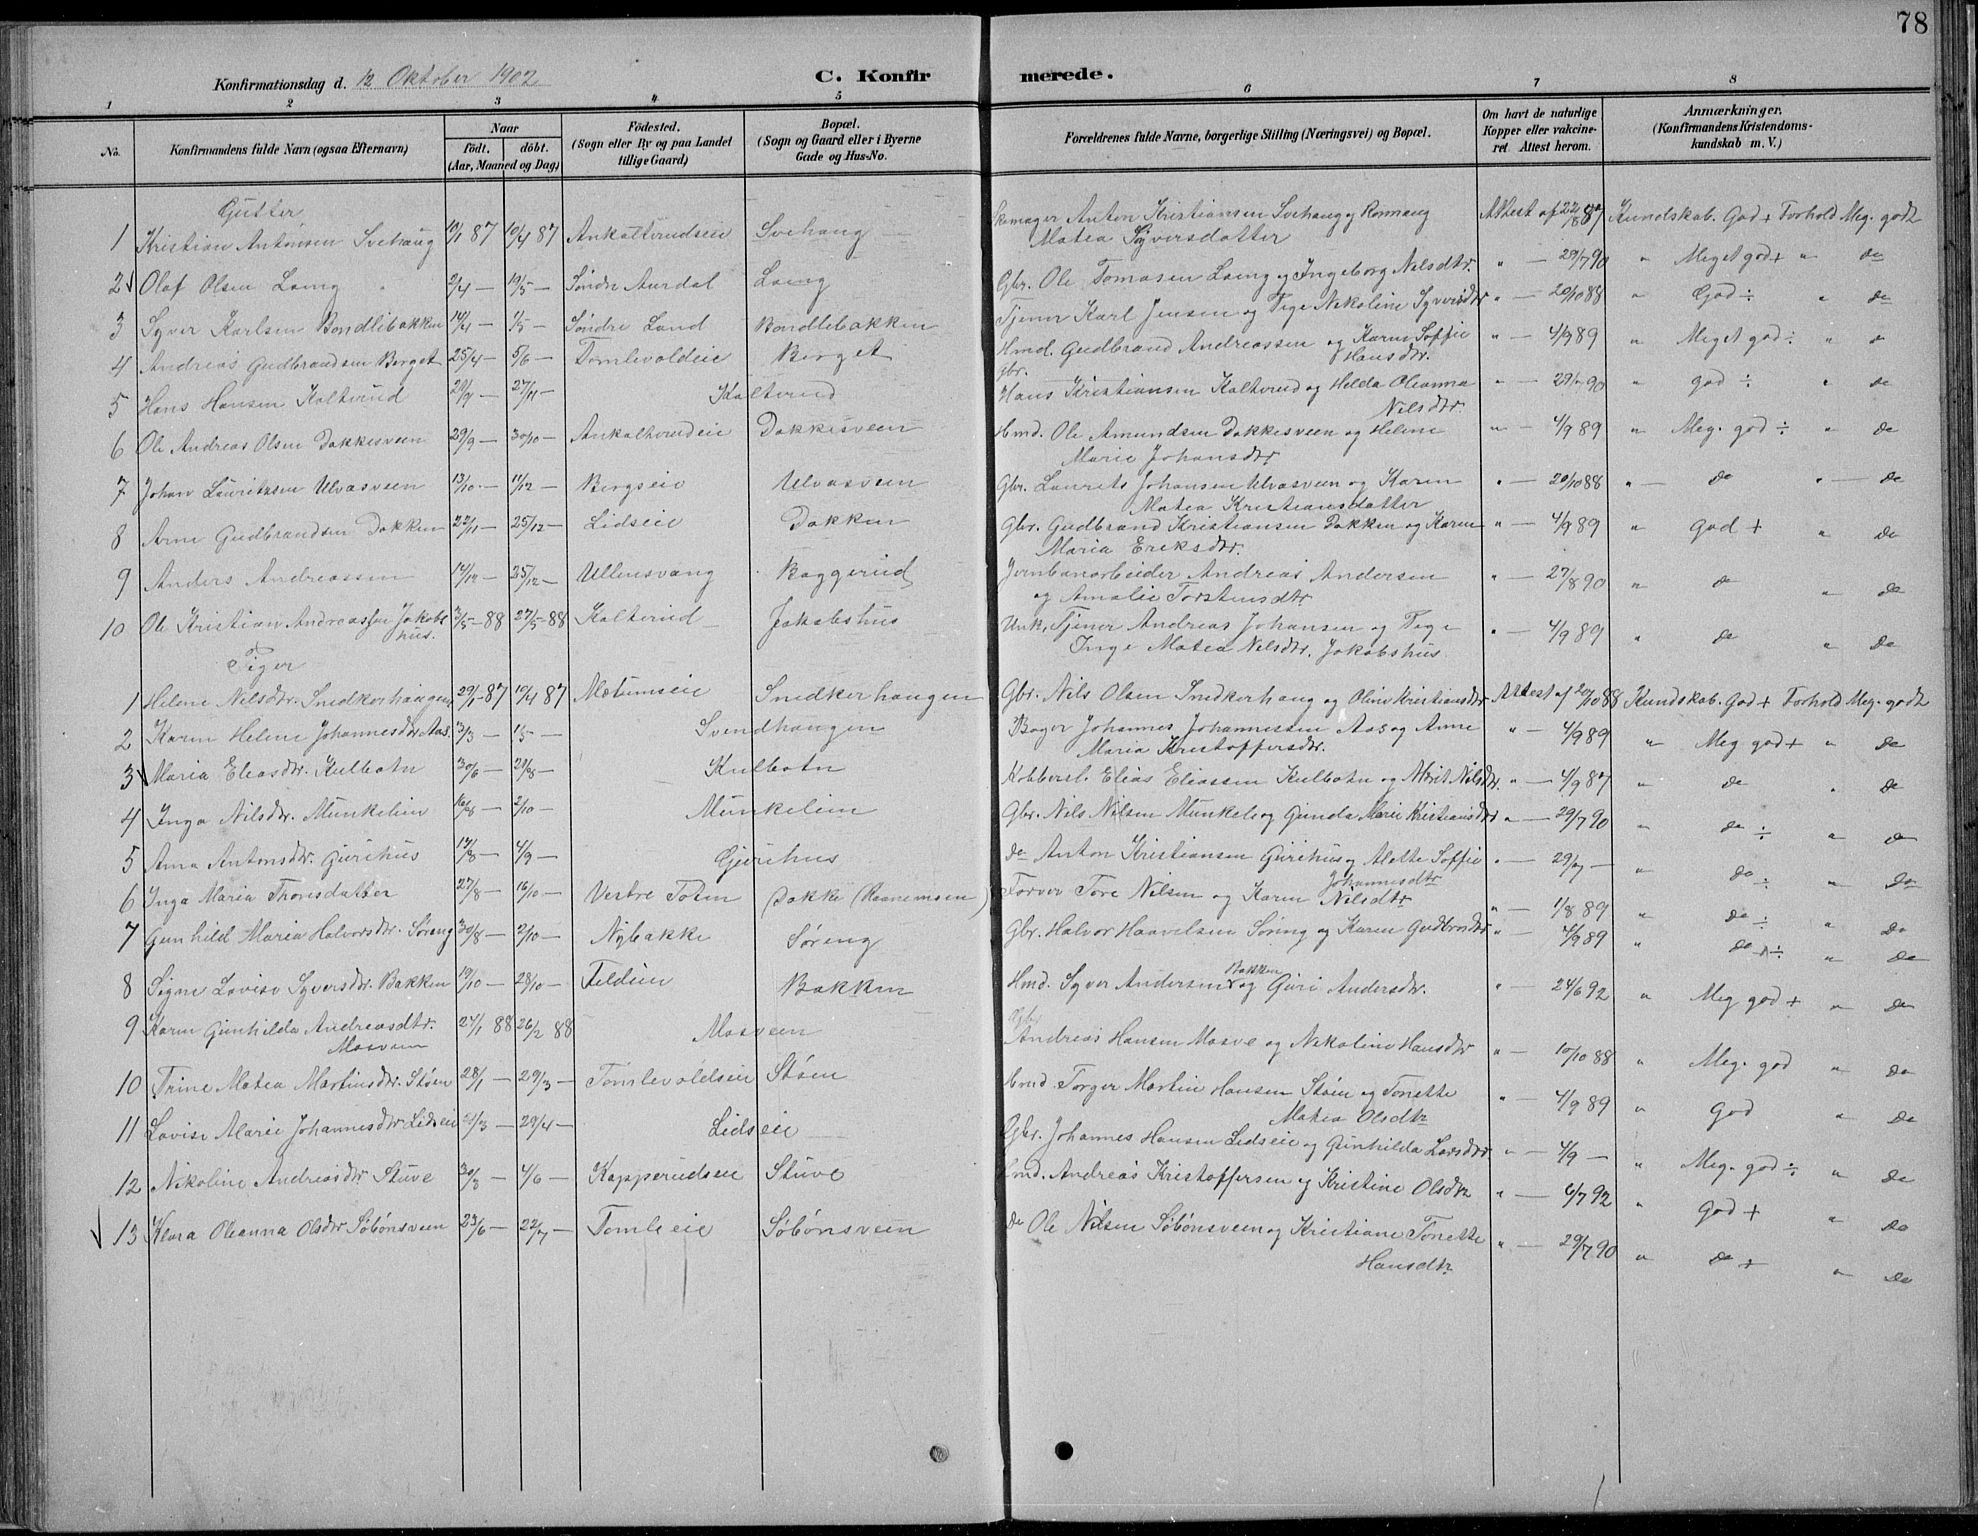 78
Konfirmationsdag d. 12 Oktober 1902
C. Konfirmerede.
1 2 3 4 5 6 7 8
No. Konfirmandens fulde Navn (ogsaa Efternavn) Naar Født. døbt. (Aar, Maaned og Dag) Fødested. (Sogn eller By og paa Landet tillige Gaard) Bopæl. (Sogn og Gaard eller i Byerne Gade og Hus-No. Forældrenes fulde Navne, borgerlige Stilling (Næringsvei) og Bopæl. Om havt de naturlige Kopper eller vakcineret. Attest herom. Anmærkninger. (Konfirmandens Kristendomskundskab m. V.)
Gutter
1 Kristian Antonsen Svehaug 10/4 87 Svehaug Anton Kristiansen Svehaug og Matea Syversdatter Attest af 22/8 87 Kundskab. God + Forhold Meg. godt
2 Olaf Olsen Laing 2/4 — 19/5 — Søndre Aurdal Laing Gbr. Ole Tomasen Laing og Ingeborg Nilsdtr. " — 29/7 90 " Meget god + " do
3 Syver Karlsen Bondlibakken 14/4 — 1/5 — Søndre Land Bondlebakken Tjener Karl Jensen og Pige Nikoline Syversdtr " — 20/10 88 " God ÷ " do
4 Andreas Gudbrandsen Berget 25/4 — 5/6 — Tomlevoldeie Berget Hmd. Gudbrand Andreassen og Karen Soffie Hansdtr. " — 4/9 89 " Meget god ÷ " d
5 Hans Hansen Kalterud 20/9 — 27/11 — Kalterud Gbr. Hans Kristiansen Kalterud og Helda Oleanna Nilsdtr. " — 90 " god ÷ " do
6 Ole Andreas Olsen Dokkesveen 29/9 — 30/10 — Dokkesveen Hmd. Ole Amundsen Dokkesveen og Helene Marie Johansdtr. " — 4/9 89 " Meg. god ÷ " do
7 Johan Lauritzsen Ulvasveen 13/10 — 11/12 — Bergseie Ulvasveen Gbr. Laurits Johansen Ulvasveen og Karen Matea Kristiansdatter " — 20/10 88 " — do " — do
8 Arne Gudbrandsen Dokken 22/11 — 25/12 — Lidseie Dokken Gbr. Gudbrand Kristiansen Dokken og Karen Maria Eriksdtr. " — 4/9 89 " god + " do
9 Anders Andreassen 14/12 — 25/12 — Ullensvang Baggerud Jernbanarbeider Andreas Andersen og Amalie Torstensdtr " — 27/8 90 " do " do
10 Ole Kristian Andreassen Jakobshus. 3/5 — 88 27/5 — 88 Kalterud Jakobshus Unk. Tjener Andreas Johansen og Pige Inge Matea Nilsdtr. Jakobshus " — 4/9 89 " do " do
Piger
1 Helene Nilsdtr. Snedkerhaugen 29/1 — 87 10/4 87 Mætumseie Snedkerhaugen Gbr. Nils Olsen Snedkerhaug og Oline Kristiansdtr Attest af 20/10 88 Kundskab. God + Forhold Meg. godt
2 Karen Helene Johannesdtr Aas. 3/3 — 1/5 — Svendhaugen Bager Johannes Johannessen Aas og Anne Maria Kristoffersdtr. " — 4/9 89 " Meg god + " do
3 Maria Eliasdtr. Kulbotn 30/6 — Kulbotn Elias Eliassen Kulbotn og Marit Nilsdtr. " — 4/9 87 " do " do
4 Inga Nilsdtr. Munkelien 16/8 — 2/10 — Munkelien Gbr. Nils Nilsen Munkeli og Gunda Marie Kristiansdtr " — 29/7 90 " do ÷ " do
5 Anna Antonsdtr. Gurihus 14/8 — 4/9 — Gurihus do Anton Kristiansen Gurihus og Alette Soffie Johannesdtr " — 29/7 — " do ÷ " do
6 Inga Maria Thorsdatter 27/8 — 16/10 — Vestre Toten Dokka Tore Nilsen og Karen Nilsdtr " — 1/8 89 " do ÷ " do
7 Gunhild Maria Halvorsdtr. Søreng 30/8 — 2/10 — Nybakke Søreng Gbr. Halvor Haavelsen Søreng og Karen Gudbrsdtr " — 4/9 89 " do ÷ " do
8 Signe Lovise Syversdtr. Bakken 19/10 — 28/10 — Feldeie Bakken Hmd. Syver Andersen Bakken og Guri Andersdtr. " — 24/6 92 " Meg god + " do
9 Karen Gunhilda Andreasdtr. Mosveen 24/1 88 26/2 88 Mosveen Andreas Hansen Mosve og Nikoline Hansdtr " — 10/10 88 " Meg. god " do
10 Trine Matea Martinsdtr. Støen 28/1 — 29/3 — Tomlevoldseie Støen Hmd. Torger Martin Hansen Støen og Tonette Matea Olsdtr " — 4/9 89 " God " do
11 Lovise Marie Johannesdtr. Lidseie 21/3 — 29/4 — Lidseie Gbr. Johannes Hansen Lidseie og Gunhilda Larsdtr " — 4/9 — " Meg. god ÷ " do
12 Nikoline Andreasdtr Stuve 30/3 — 4/6 — Kopperudseie Stuve Hmd. Andreas Kristoffersen og Kristine Olsdtr " — 6/7 92 " God + " do
13 Klara Oleanna Olsdtr Søbønsveen 23/6 — 22/7 — Tomleeie Søbønsveen do Ole Nilsen Søbønsveen og Kristiane Tonette Hansdtr " — 29/7 90 " do + " do